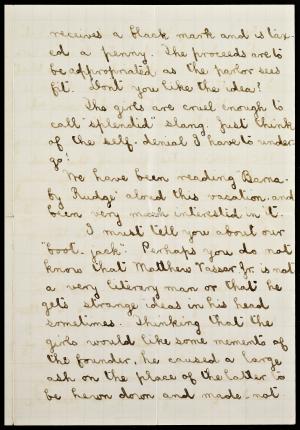 receives a black mark and is tax-
ed a penny. The proceeds are to
be appropriated as the parlor sees
fit. Don't you like the idea?
The girls are cruel enough to
call "splendid" slang. Just think
of the self-denial I have to under-
go!
We have been reading "Barna-
by Rudge" aloud this vacation, and
been very much interested in it.
I must tell you about our
"boot-jack". Perhaps you do not
know that Matthew Vassar Jr. is not
a very literary man or that he
gets strange ideas in his head
sometimes. Thinking that the
girls would like some memento of
the founder, he caused a large
ash on the place of the latter to
be hewn down and made - not